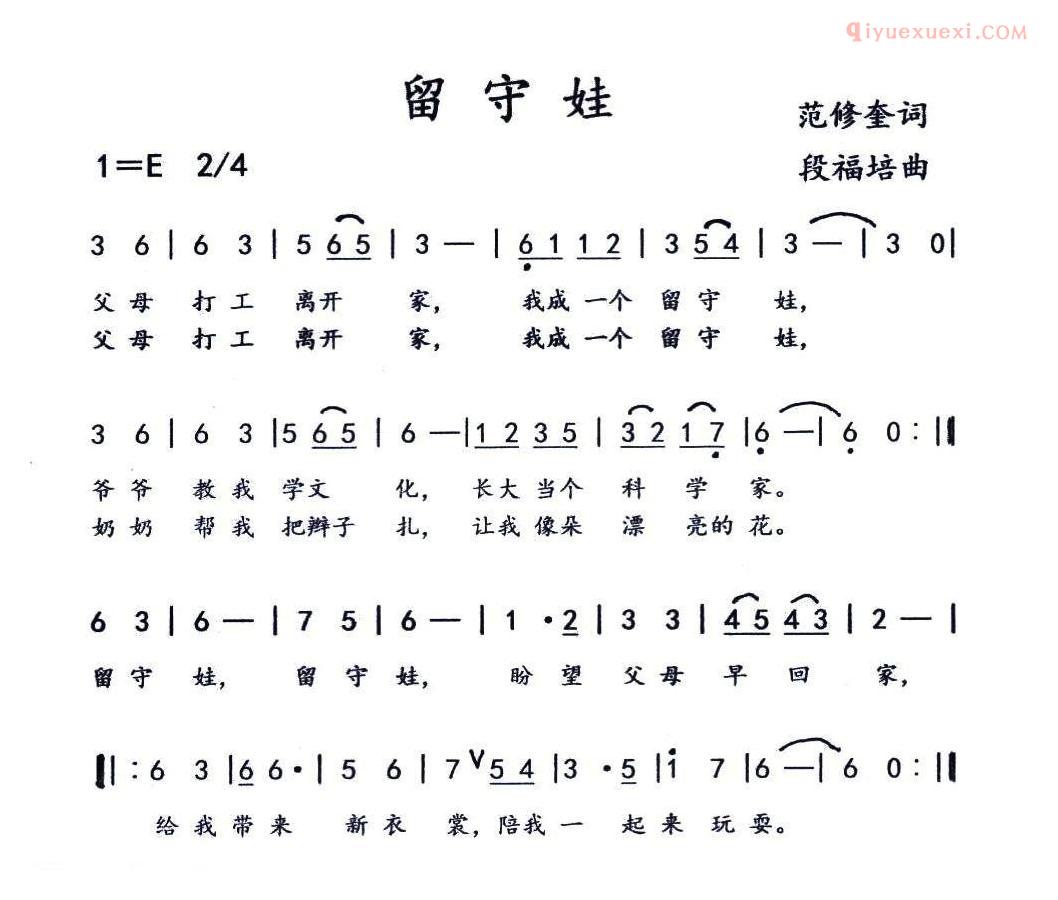 qiyuexuexi.COM
留守娃
范修奎词
1=E 2/4
段福培曲
3 6 | 6 3 | 5 6 5 | 3 — | 6 1 1 2 | 3 5 4 | 3 — | 3 0 |
父母 打工 离开 家, 我成一个 留守 娃,
父母 打工 离开 家, 我成一个 留守 娃,
3 6 | 6 3 | 5 6 5 | 6 — | 1 2 3 5 | 3 2 1 7 | 6 — | 6 0 :||
爷爷 教我 学文 化, 长大当个 科学 家。
奶奶 帮我 把辫子 扎, 让我像朵 漂亮的 花。
6 3 | 6 — | 7 5 | 6 — | 1 · 2 | 3 3 | 4 5 4 3 | 2 — |
留守 娃, 留守 娃, 盼望 父母 早回 家,
||: 6 3 | 6 6 · | 5 6 | 7 V 5 4 | 3 · 5 | 1 7 | 6 — | 6 0 :||
给我 带来 新衣 裳, 陪我 一起 来玩 耍。